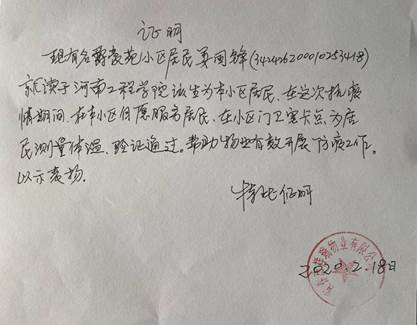 证明
现有名爵豪苑小区居民 国锋(342426200010253418)
就读于河南工程学院该生为本小区居民、在这次抗疫
情期间、在本小区自愿服务居民、在小区门卫室卡点、为居
民测量体温、验证通过。帮助物业有效开展防疫工作。
以示表扬.
特此证明
物业有限公
2020.2.18日